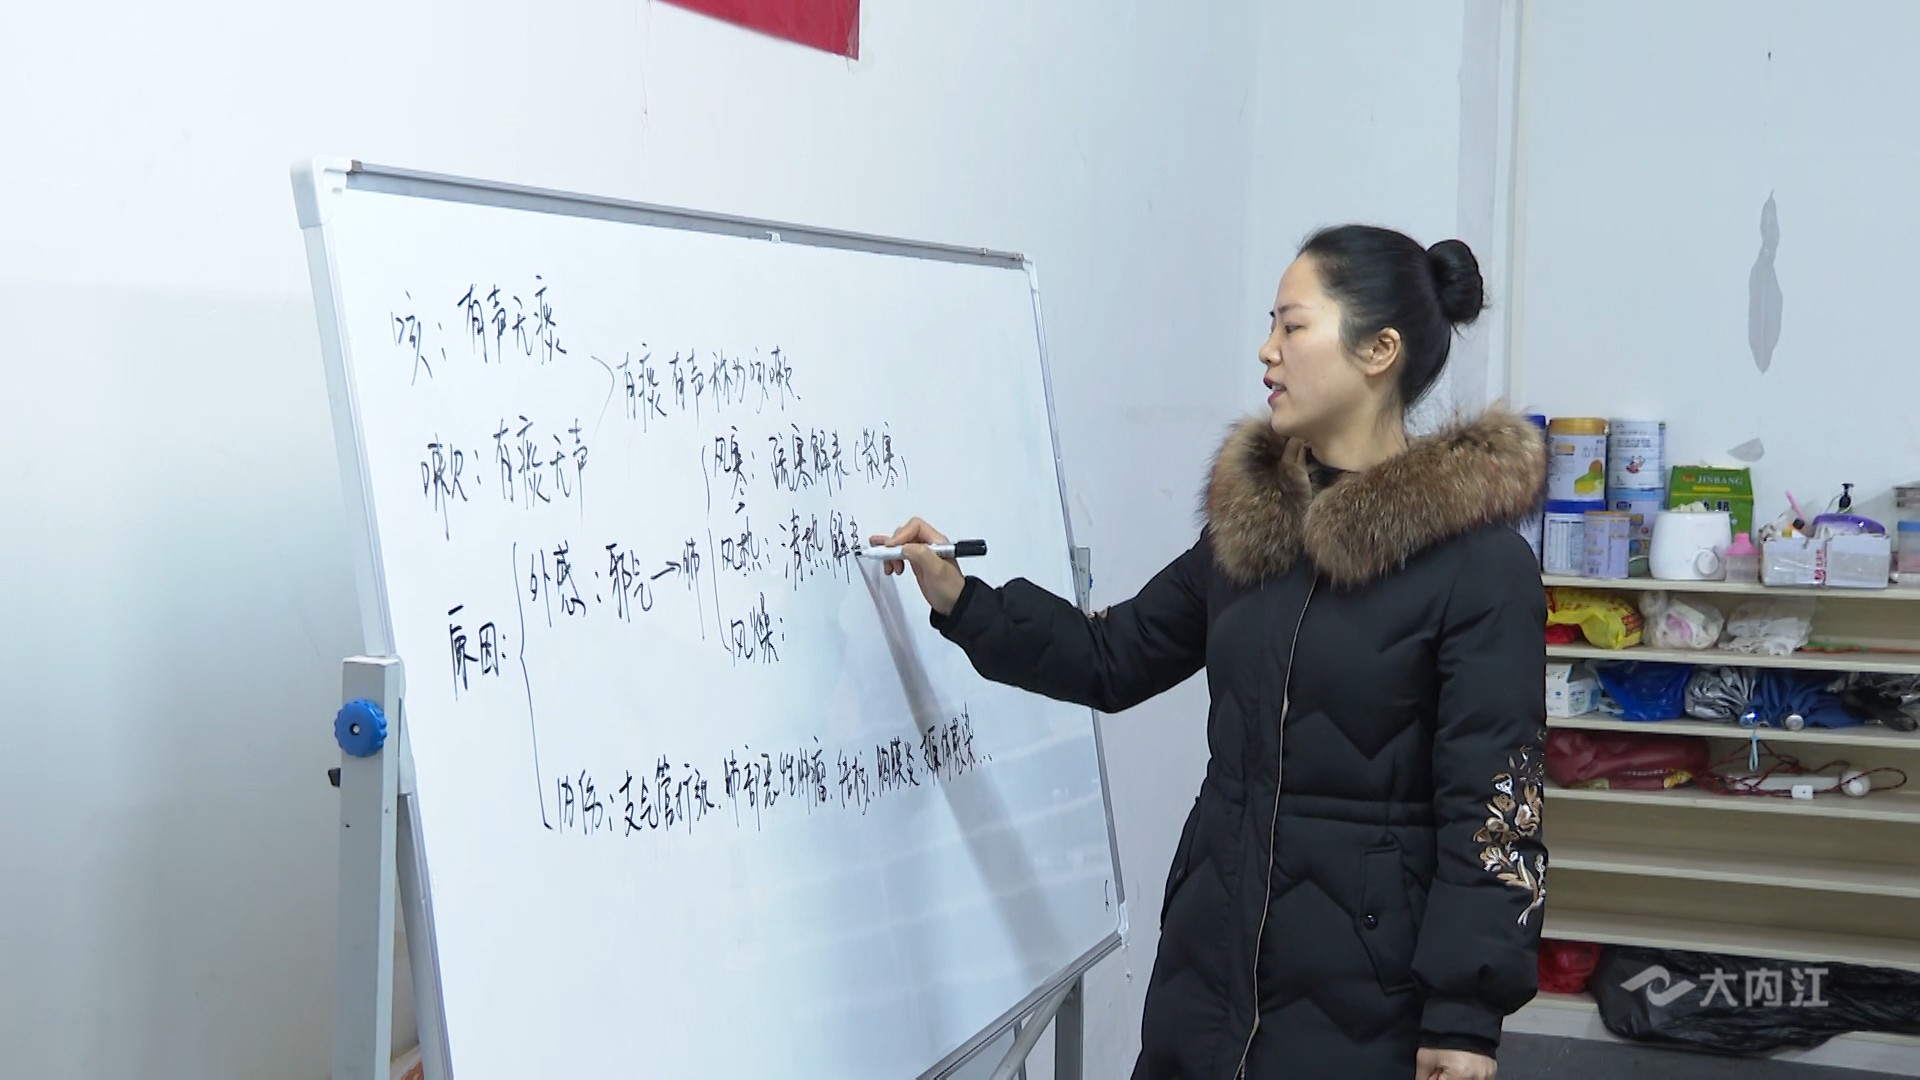 咳：有声无痰
有痰有声称为咳嗽.
嗽：有痰无声
原因：
外感：邪气→肺
风寒：疏寒解表（散寒）
风热：清热解表
风燥：
内伤：支气管扩张、肺部恶性肿瘤、结核、胸膜炎、支原体感染...
JINBANG
大内江